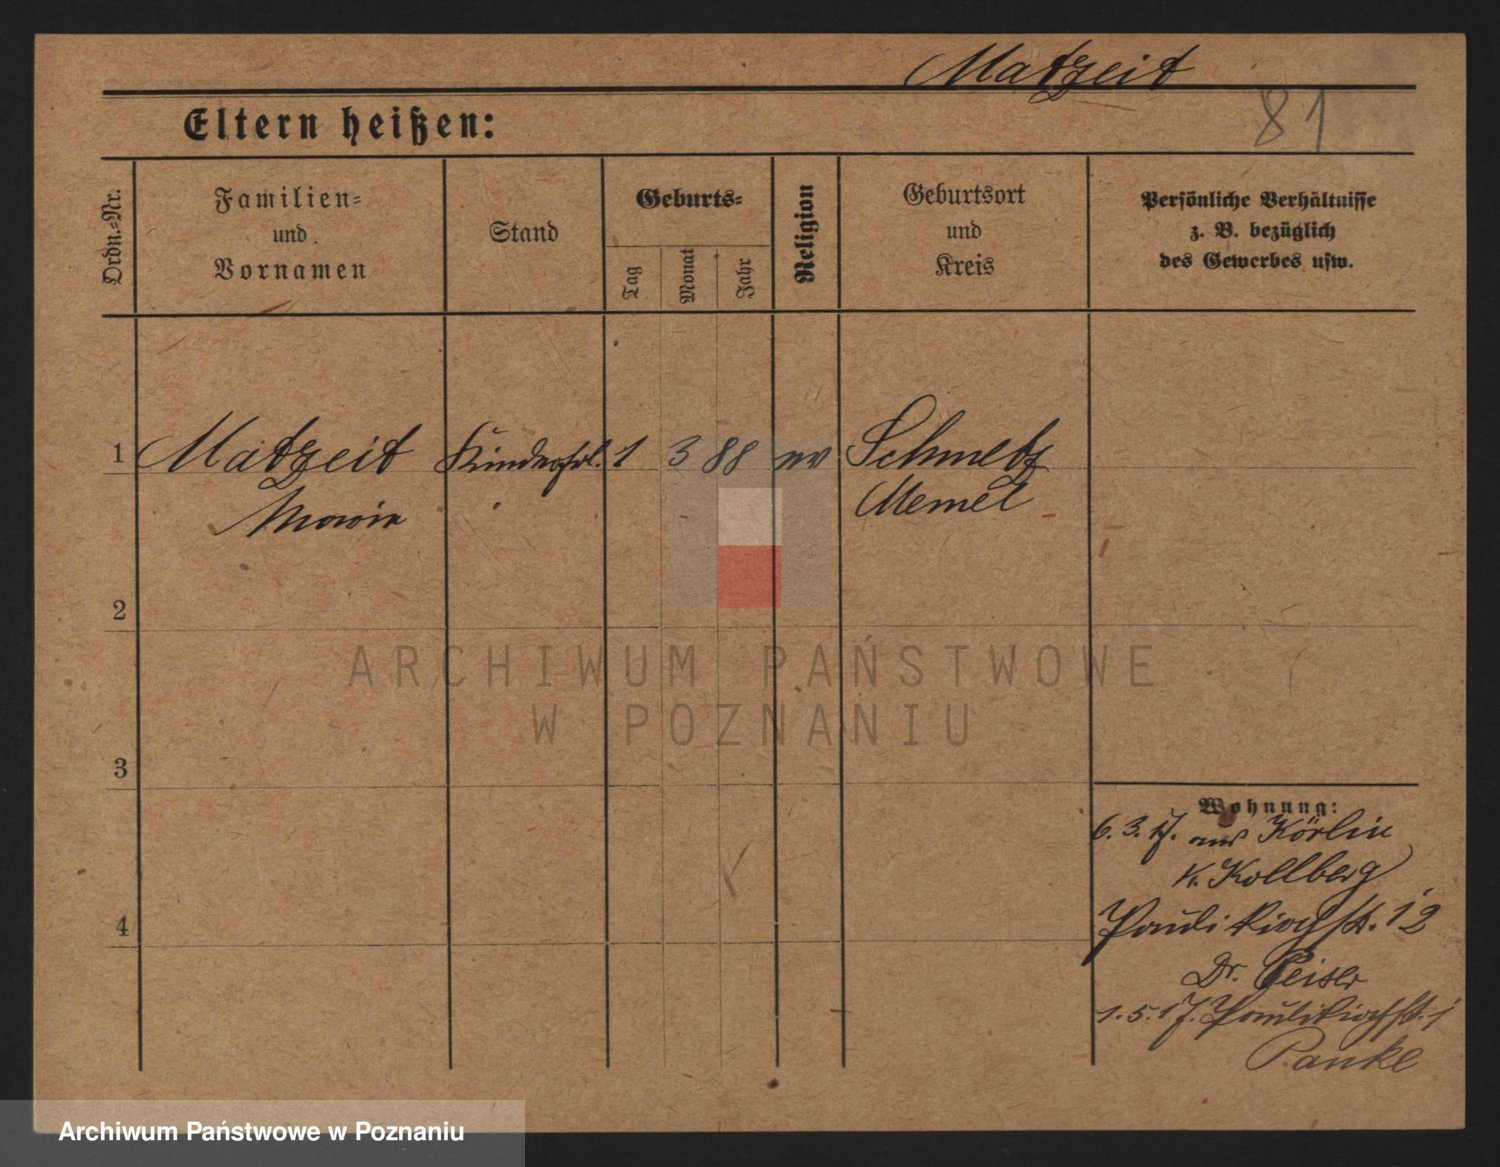 Matzeit
81
Eltern heißen:
Ordn.-Nr.
Familien-
und
Vornamen
Stand
Geburts-
Tag
Monat
Jahr
Religion
Geburtsort
und
Kreis
Persönliche Verhältnisse
z. B. bezüglich
des Gewerbes usw.
1 Matzeit Kinderfrl. 1 3 88 ev Schmelz
Maria Memel
2
3
4
Wohnung:
6.3.17. aus Körlin
K. Kollberg
Paulikirchst. 12
Dr. Peiser
1.5.17. Paulikirchst. 1
Panke
ARCHIWUM PAŃSTWOWE
W POZNANIU
Archiwum Państwowe w Poznaniu